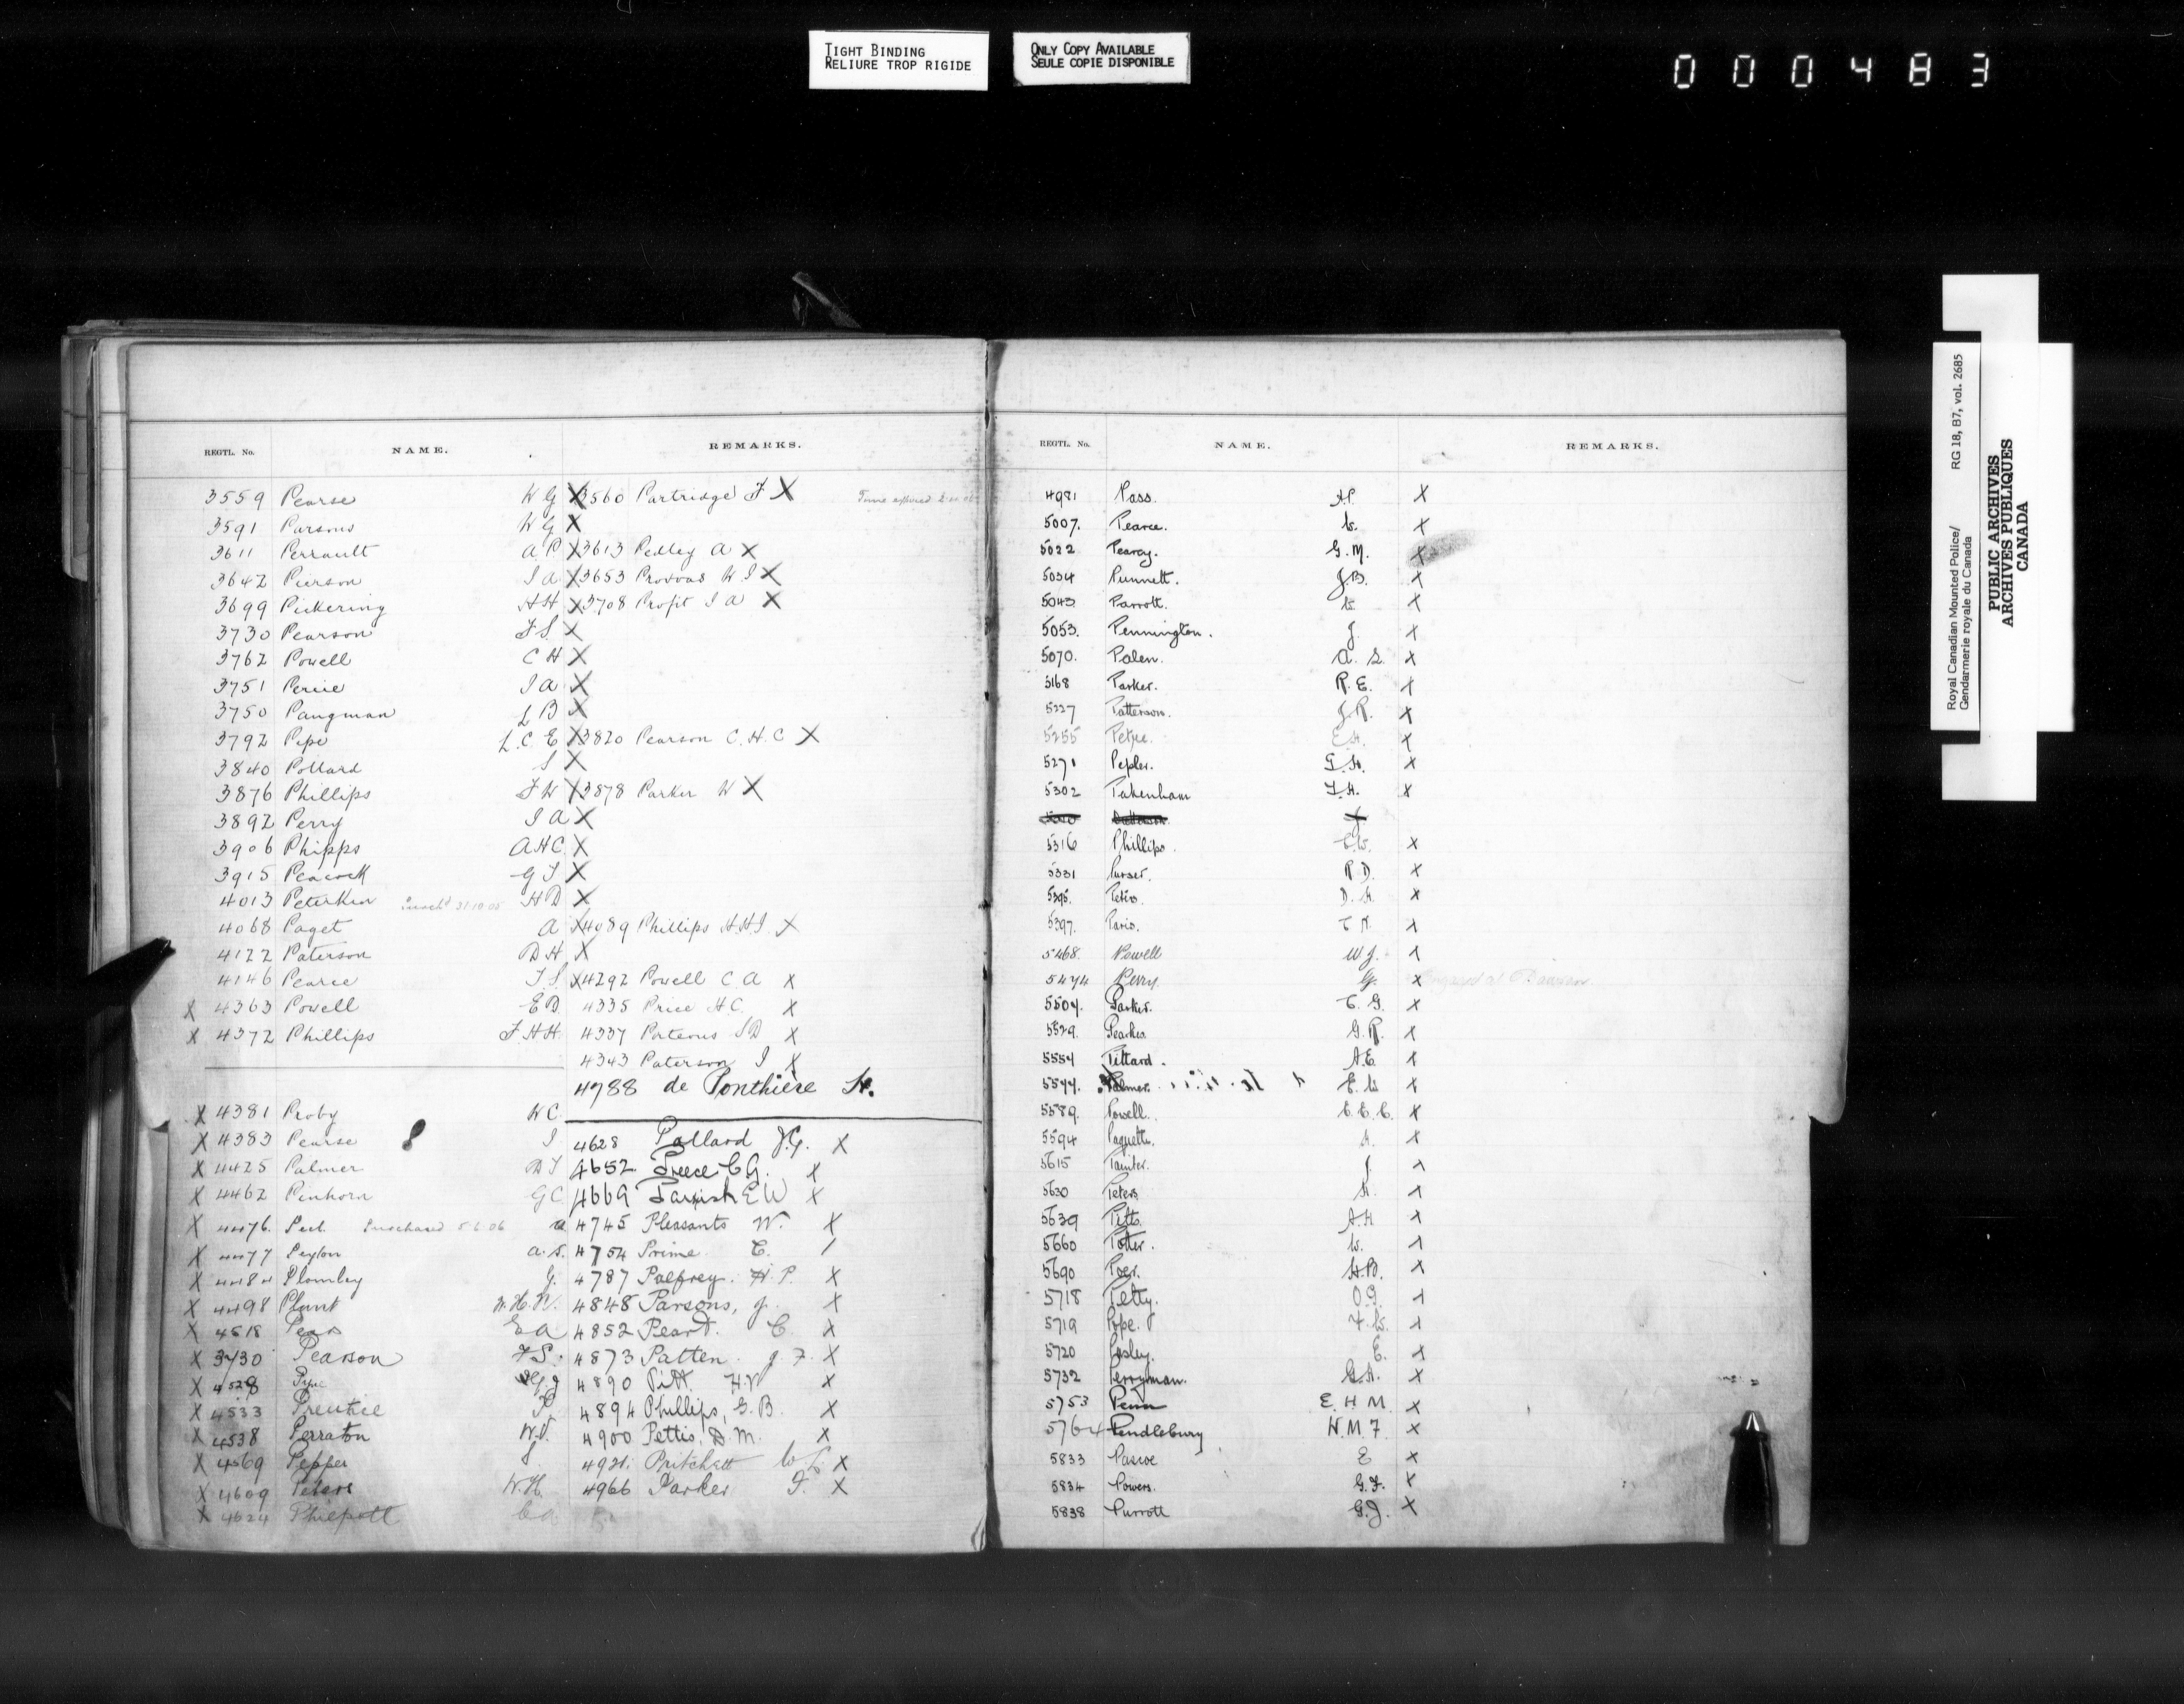 TIGHT BINDING
RELIURE TROP RIGIDE
ONLY COPY AVAILABLE
SEULE COPIE DISPONIBLE
000483
Royal Canadian Mounted Police/ RG 18, B7, vol. 2685
Gendarmerie royale du Canada
PUBLIC ARCHIVES
ARCHIVES PUBLIQUES
CANADA
REGTL. No. NAME. REMARKS.
3559 Pearse W G X 3560 Partridge F X Time expired
3591 Parsons W G X
3611 Perrault A P X 3613 Pedley A X
3642 Pierson J A X 3653 Provoas W J X
3699 Pickering H H X 3708 Profit J A X
3730 Pearson F S. X
3762 Powell C H X
3751 Perrie J A X
3750 Pangman L B X
3792 Pipe L. C. E X 3820 Pearson C. H. C X
3840 Pollard J X
3876 Phillips F W X 3878 Parker W X
3892 Perry J A X
3906 Phipps A H C. X
3915 Peacock G T X
4013 Peterkin 31.10.05 H D X
4068 Paget A X 4089 Phillips H H J. X
4122 Paterson D H X
4146 Pearce T S. X 4292 Powell C A X
X 4363 Powell E D. 4335 Price H C. X
X 4372 Phillips F. H H. 4337 Porteous J D X
4343 Paterson J X
4788 de Ponthière H.
X 4381 Proby W C.
X 4383 Pearse J. 4628 Pollard J.G. X
X 4425 Palmer D T 4652. Preece C G. X
X 4462 Pinhorn G C. 4669 Parrish E W X
X 4476. Peel Purchased 5.6.06 a 4745 Pleasants W. X
X 4477 Peyton a. s. 4754 Prime. C. /
X 4484 Plomley G. 4787 Palfrey. H. P. X
X 4498 Plant W. H. N. 4848 Parsons, J. X
X 4518 Pears E A 4852 Peart. C. X
X 3730 Pearson F S. 4873 Patten. J F. X
X 4528 4890 Pitt. H. X
X 4533 Prentice P. 4894 Phillips, G. B. X
X 4538 Perraton W. J. 4900 Pettis, D. M. X
X 4569 Pepper J. 4921. Pritchett W L. X
X 4609 Peters W. H. 4966 Parker F. X
X 4624 Philpott C a
REGTL. No. NAME. REMARKS.
4981 Pass. H. X
5007. Pearce. W. X
5022 Pearcy. G. M. X
5034 Punnett. J. B. X
5043 Parrott. W. X
5053. Pennington. J. X
5070. Palen. A. L. X
5168 Parker. R. E. X
5227 Patterson. J. R. X
5255 Petrie. E. H. X
5271 Pepler. G. H. X
5302 Pakenham T. H. X
Patterson. J
5316 Phillips. C. W. X
5331 Purser. R. D. X
5395. Peters. D. H. X
5397. Paris. C. N. X
5468. Powell W. J. X
5474 Perry. G. X Engaged at Dawson
5507. Parker. C. G. X
5529. Pearkes. G. R. X
5554 Pittard. A. E. X
5577. Palmer. E. W X
5589. Powell. C. E. C. X
5594 Paquette. H. X
5615 Painter. J. X
5630 Peters. H. X
5639 Pitts. A. H X
5660 Potter. W. X
5690 Poer. H. B. X
5718 Petty. O. G. X
5719 Pope. F. W. X
5720 Pasley. E. X
5732 Perryman. G. A. X
5753 Penn E. H. M. X
5764 Pendlebury W. M. F. X
5833 Pascoe E X
5834 Powers. G. F. X
5838 Purrott G. J. X